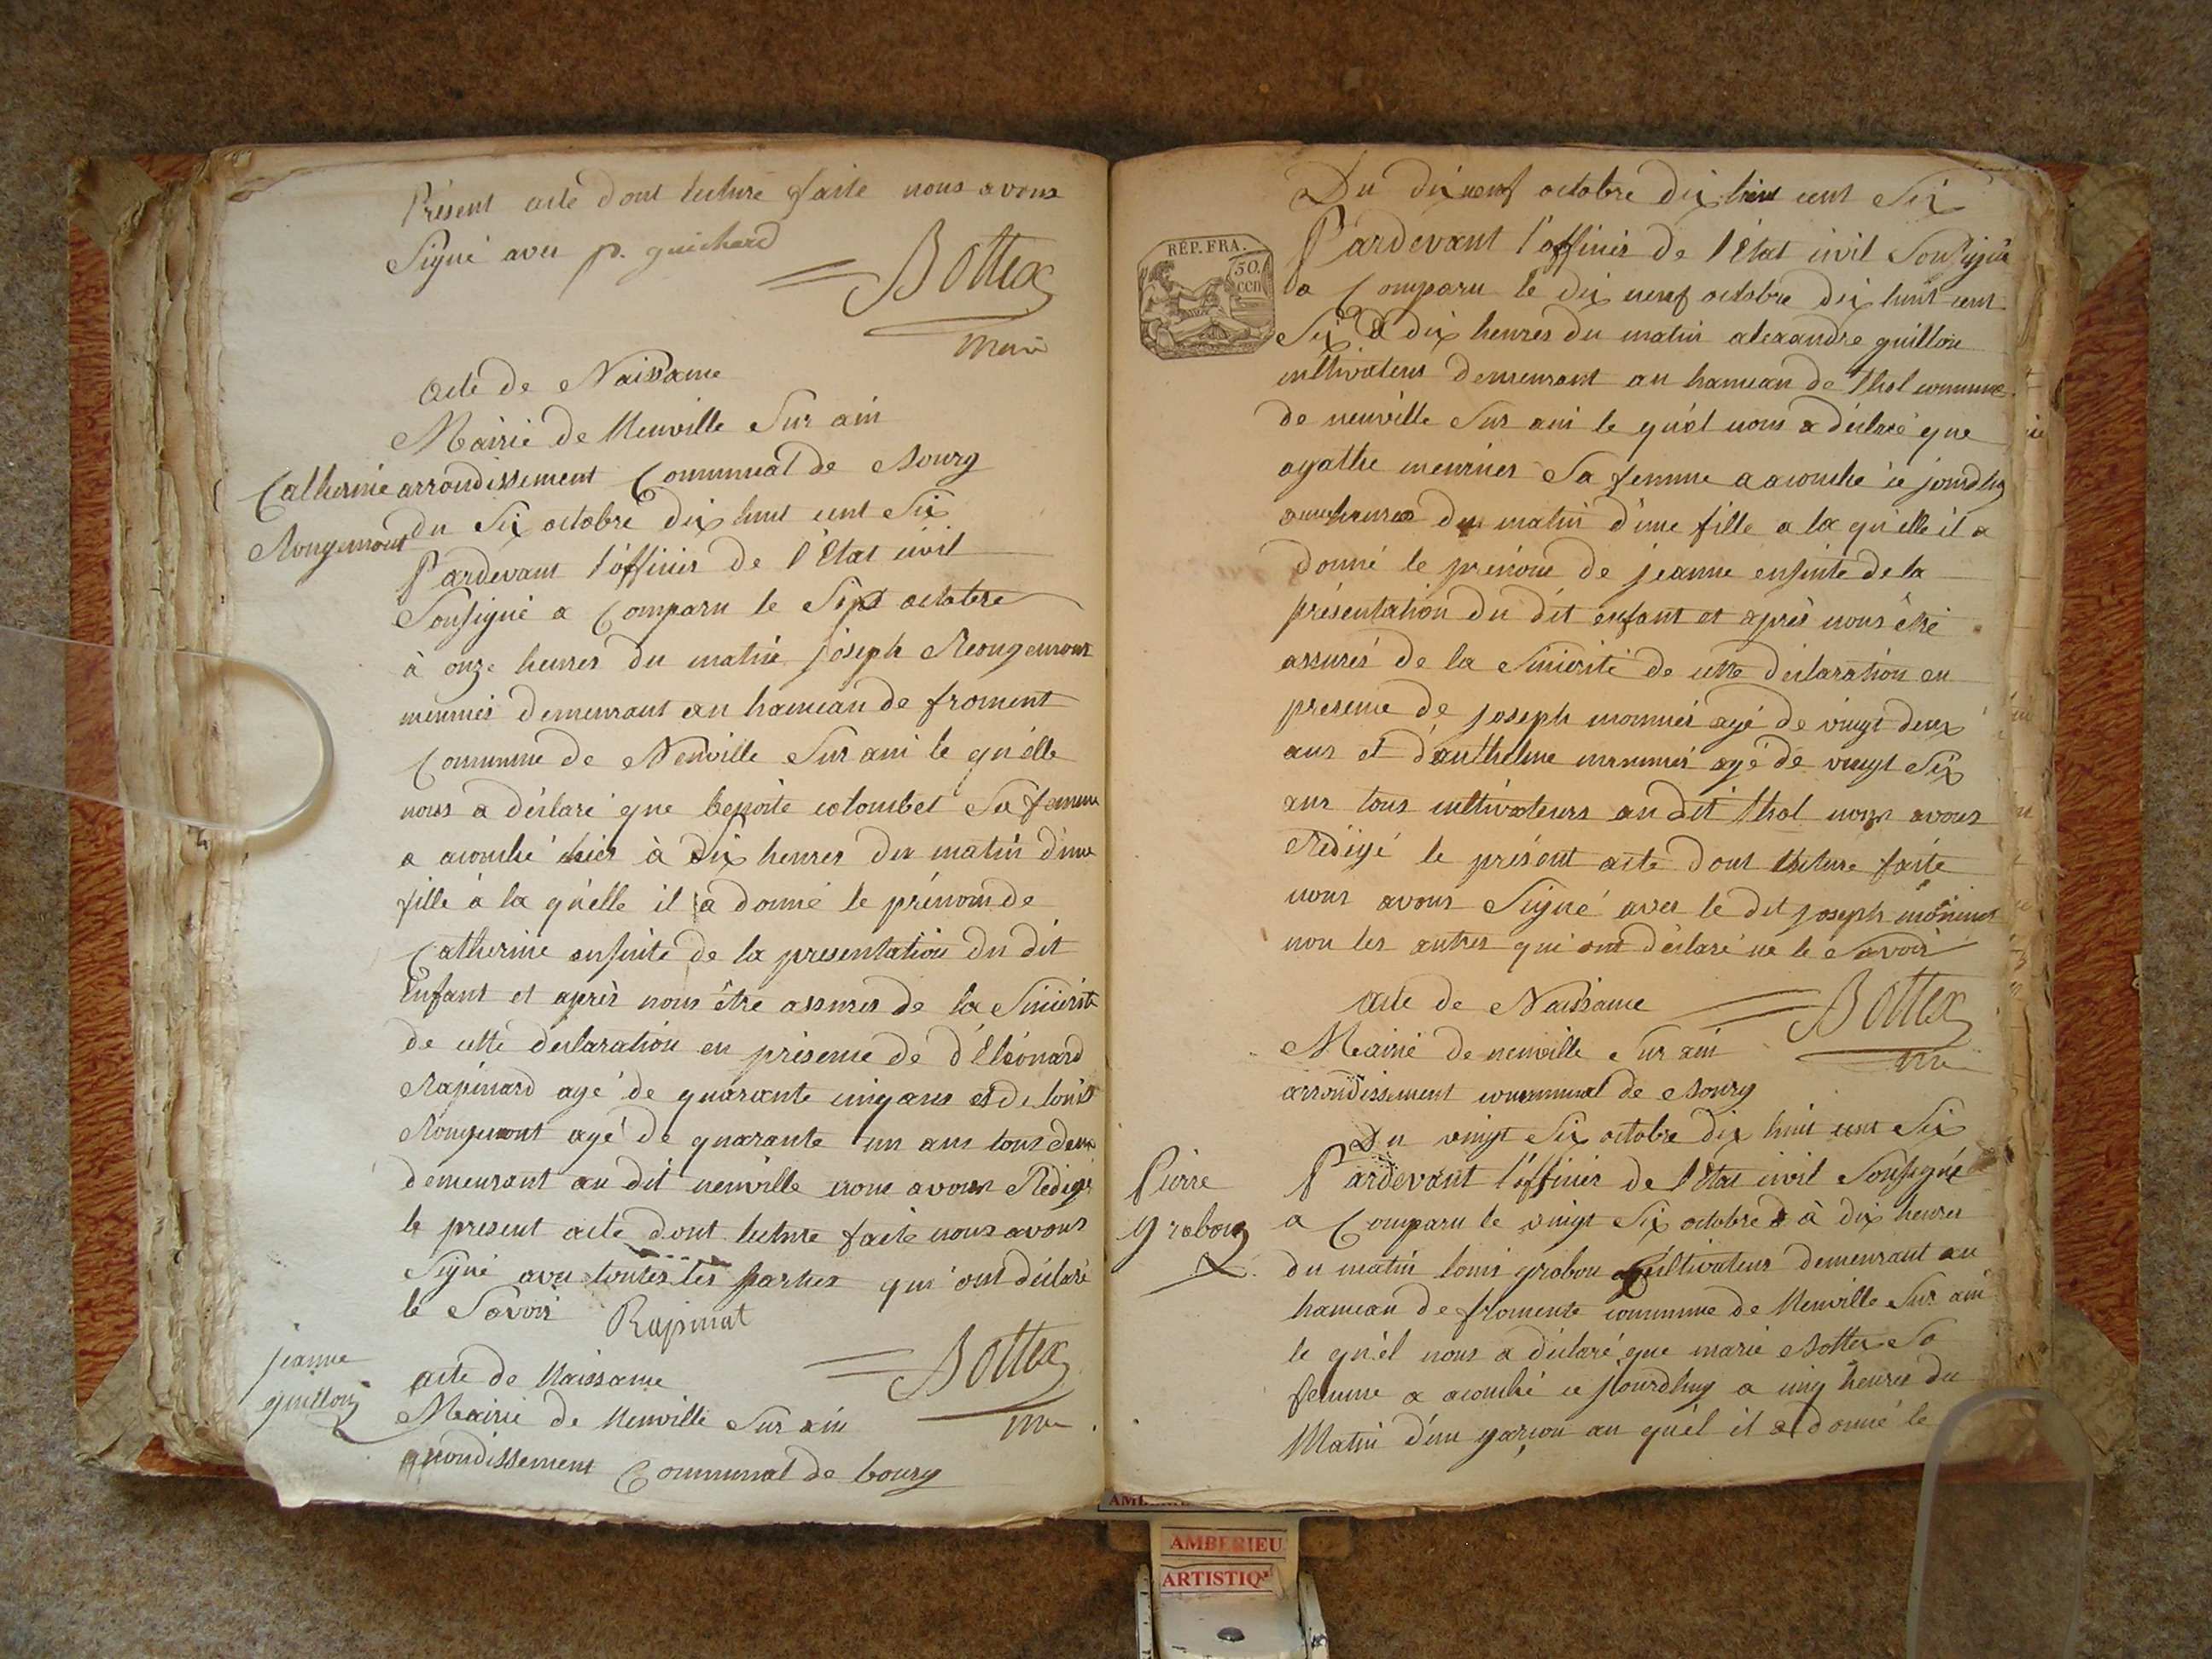 Présent acte dont lecture faite nous avons
Signé avec p. guichard
Bottex
acte de Naissance
Mairie de Neuville Sur ain
Catherine
Rougemont
arrondissement Communal de Bourg
du Six octobre dix huit cent Six
Pardevant l'officier de l'Etat civil
Sousigné a Comparu le Sept octobre
à onze heures du matin joseph Rougemont
meunier demeurant au hameau de froment
Commune de Neuville Sur ain le qu'elle
nous a déclaré que benoite colombet Sa femme
a acouché hier à dix heures du matin d'une
fille à la qu'elle il a donné le prénom de
Catherine ensuite de la presentation du dit
Enfant et après nous être assurés de la Sincerité
de cette déclaration en présence de d'Eléonard
Rapinard agé de quarante cinq ans et de louis
Rougemont agé de quarante un ans tous deux
demeurant au dit neuville nous avons Rédigé
le present acte dont lecture faite nous avons
Signé avec toutes les parties qui ont déclaré
le Savoir Rapinat
Bottex
jeanne
guillon
acte de Naissance
Mairie de Neuville Sur ain
arrondissement Communal de bourg
Du dix neuf octobre dix huit cent Six
REP. FRA.
50.
cen
Pardevant l'officier de l'Etat civil Sousigné
a Comparu le dix neuf octobre dix huit cent
Six à dix heures du matin alexandre guillon
cultivateur demeurant au hameau de thol commune
de neuville Sur ain le quél nous a déclaré que
agathe meunier Sa femme a acouché ce jourdhuy
du matin d'une fille a la qu'elle il a
donné le prénom de jeanne ensuite de la
présentation du dit enfant et après nous être
assurés de la Sincerité de cette déclaration en
presence de joseph monnier agé de vingt deux
ans et d'anthelme monnier agé de vingt Six
ans tous cultivateurs au dit thol nous avons
Rédigé le présent acte dont lecture faite
nous avons Signé avec le dit joseph monnier
non les autres qui ont déclaré ne le Savoir
acte de Naissance
Bottex
Mairie de neuville Sur ain
arrondissement communal de Bourg
Du vingt Six octobre dix huit cent Six
Pierre
grobou
Pardevant l'officier de l'Etat civil Sousigné
a Comparu le vingt Six octobre à dix heures
du matin louis grobou Cultivateur demeurant au
hameau de fromente commune de Neuville Sur ain
le qu'él nous a déclaré que marie Bottex Sa
femme a acouché ce jourdhuy a cinq heures du
Matin d'un garçon au quél il a donné le
AMBERIEU
ARTISTIQ